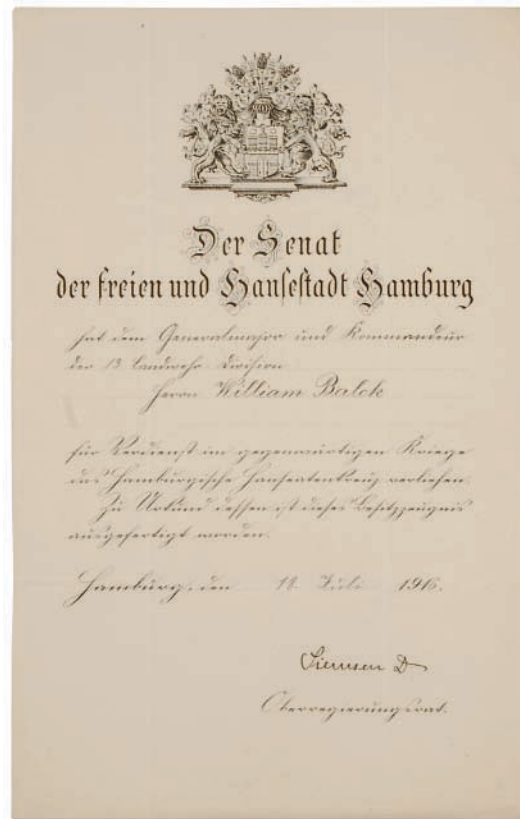 Der Senat
der freien und Hansestadt Hamburg
hat dem Generalmajor und Kommandeur
der 13 Landwehr Division
Herrn William Balck
für Verdienst im gegenwärtigen Kriege
das Hamburgische Hanseatenkreuz verliehen.
Zu Urkund dessen ist dieses Besitzzeugnis
ausgefertigt worden.
Hamburg, den 18. Juli 1916.
Oberregierungsrat.